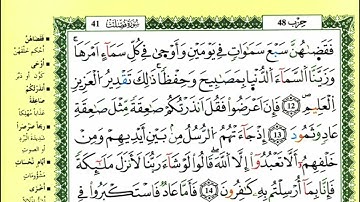 41
سُورَةُ فُصِّلَتْ
حِزْب 48
فَقَضَىٰهُنَّ سَبْعَ سَمَٰوَاتٍ فِے يَوْمَيْنِ وَأَوْحَىٰ فِے كُلِّ سَمَآءٍ اَمْرَهَا
وَزَيَّنَّا اَ۬لسَّمَآءَ اَ۬لدُّنْيَا بِمَصَٰبِيحَ وَحِفْظاٗ ذَٰلِكَ تَقْدِيرُ اُ۬لْعَزِيزِ
اِ۬لْعَلِيمِ 12 فَإِنَ اَعْرَضُواْ فَقُلَ اَنذَرْتُكُمْ صَٰعِقَةٗ مِّثْلَ صَٰعِقَةِ
عَادٖ وَثَمُودَ 13 إِذْ جَآءَتْهُمُ اُ۬لرُّسُلُ مِنۢ بَيْنِ أَيْدِيهِمْ وَمِنْ
خَلْفِهِمُۥٓ أَلَّا تَعْبُدُوٓاْ إِلَّا اَ۬للَّهَ قَالُواْ لَوْ شَآءَ رَبُّنَا لَأَنزَلَ مَلَٰٓئِكَةٗ
فَإِنَّا بِمَآ أُرْسِلْتُم بِهِۦ كَٰفِرُونَ 14 فَأَمَّا عَادٞ فَاسْتَكْبَرُواْ فِے
فَقَضَاهُنَّ
أَوْحَى
أَنذَرْتُكُمْ
صَاعِقَةً
رِيحاً صَرْصَراً
أَيَّامٍ نَّحِسَاتٍ
أَخْزَى